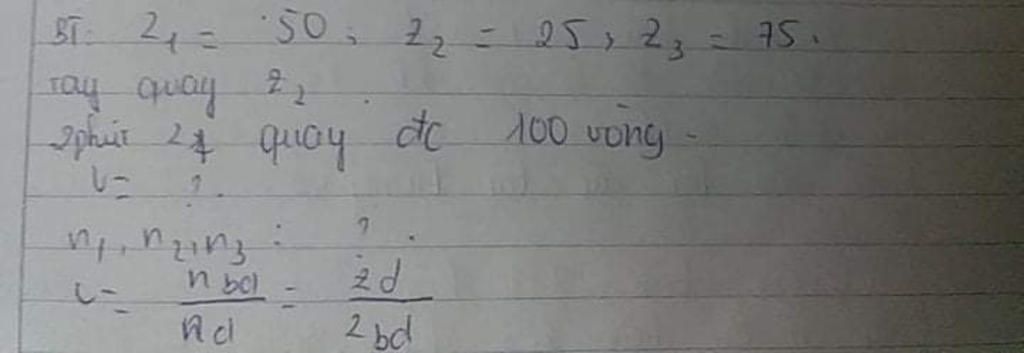 BT: Z1 = 50; Z2 = 25, Z3 = 75.
Tay quay Z2.
2phút Z1 quay đc 100 vòng.
i = ?.
n1, n2, n3 : ? .
i = nbd / nd = Zd / Zbd